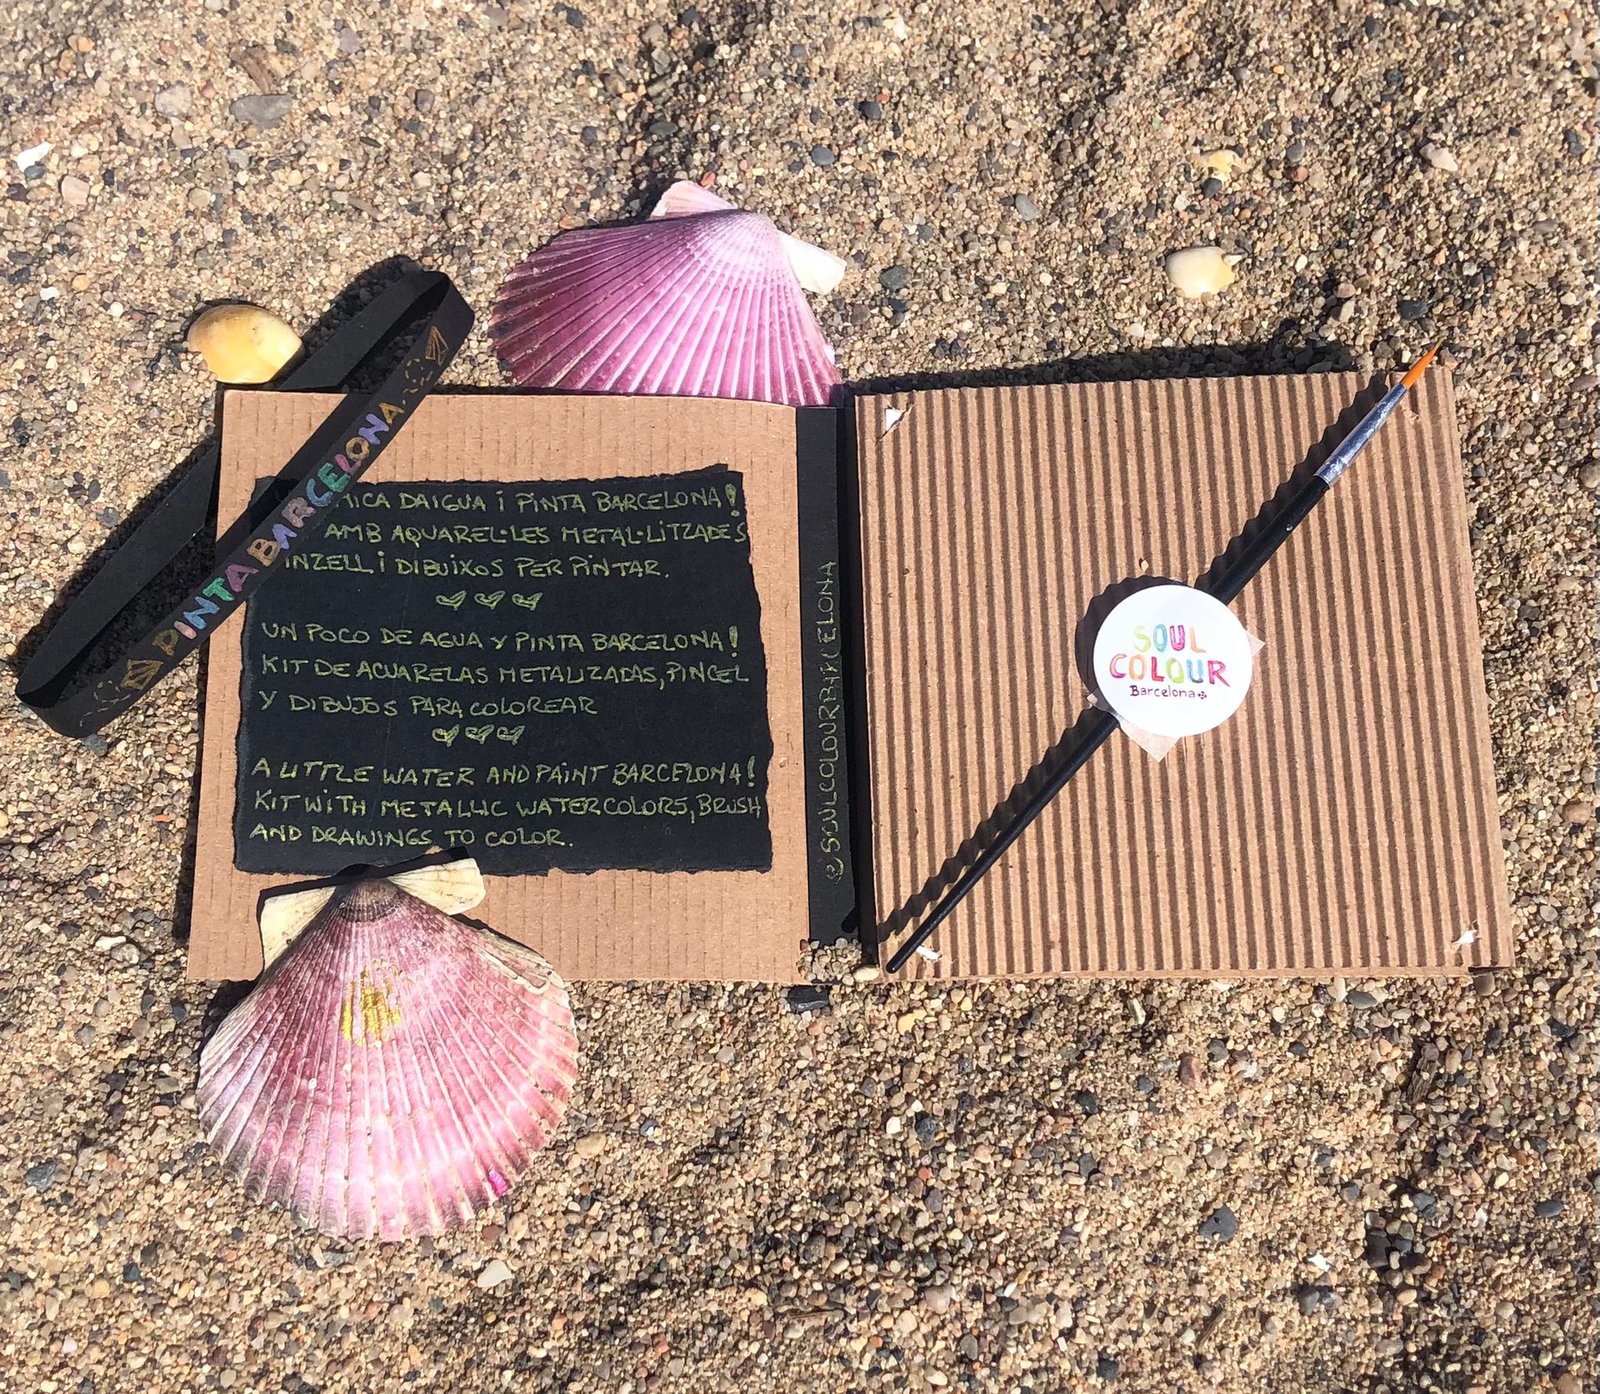 PINTA BARCELONA
MICA DAIGUA i PINTA BARCELONA!
AMB AQUAREL·LES METAL·LITZADES
INZELL i DIBUIXOS PER PINTAR.
UN POCO DE AGUA Y PINTA BARCELONA!
KIT DE ACUARELAS METALIZADAS, PINCEL
Y DIBUJOS PARA COLOREAR
A LITTLE WATER AND PAINT BARCELONA!
KIT WITH METALLIC WATERCOLORS, BRUSH
AND DRAWINGS TO COLOR.
SOUL
COLOUR
Barcelona